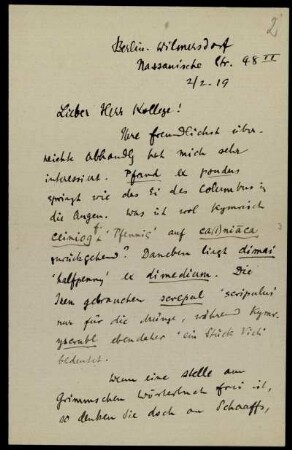 2
Berlin-Wilmersdorf
Nassauische Str. 48 III.
2/2.19
Lieber Herr Kollege!
Ihre freundlichst über-
reichte Abhandlg hat mich sehr
interessiert. Pfand ex pondus
springt wie das Ei des Columbus in
die Augen. Was ist wol kymrisch
ceiniog 'Pfennig' auf
zurückgehend? Daneben liegt dimai
'halfpenny' ex dimedium. Die
Iren gebrauchen screpul 'scripulus'
nur für die Münze, während kymr.
ysgrubl ebendaher 'ein Stück Vieh'
bedeutet.
Wenn eine Stelle am
Grimmschen Wörterbuch frei ist,
so denken Sie doch an Schaaffs,